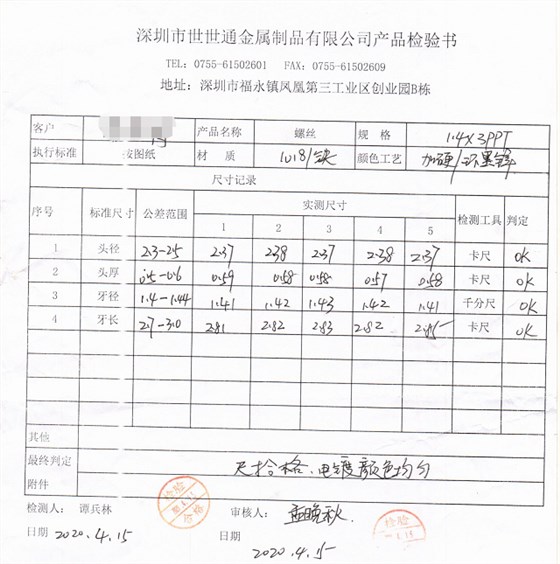 深圳市世世通金属制品有限公司产品检验书
TEL: 0755-61502601 FAX: 0755-61502609
地址: 深圳市福永镇凤凰第三工业区创业园B栋
客户 产品名称 螺丝 规 格 1.4X3PPT
执行标准 按图纸 材 质 1018/铁 颜色工艺 加硬/环黑锌
尺寸记录
序号 标准尺寸 公差范围 实测尺寸 检测工具 判定
1 2 3 4 5
1 头径 2.3-2.5 2.37 2.38 2.37 2.38 2.37 卡尺 OK
2 头厚 0.5-0.6 0.59 0.58 0.58 0.57 0.58 卡尺 OK
3 牙径 1.4-1.44 1.41 1.42 1.43 1.42 1.41 千分尺 OK
4 牙长 2.7-3.0 2.81 2.82 2.83 2.82 2.85 卡尺 OK
其他
最终判定 尺寸合格、电镀颜色均匀
附件
检测人: 谭兵林 检验 合格 审核人: 晚秋 检验
日期 2020.4.15 日期 2020.4.15